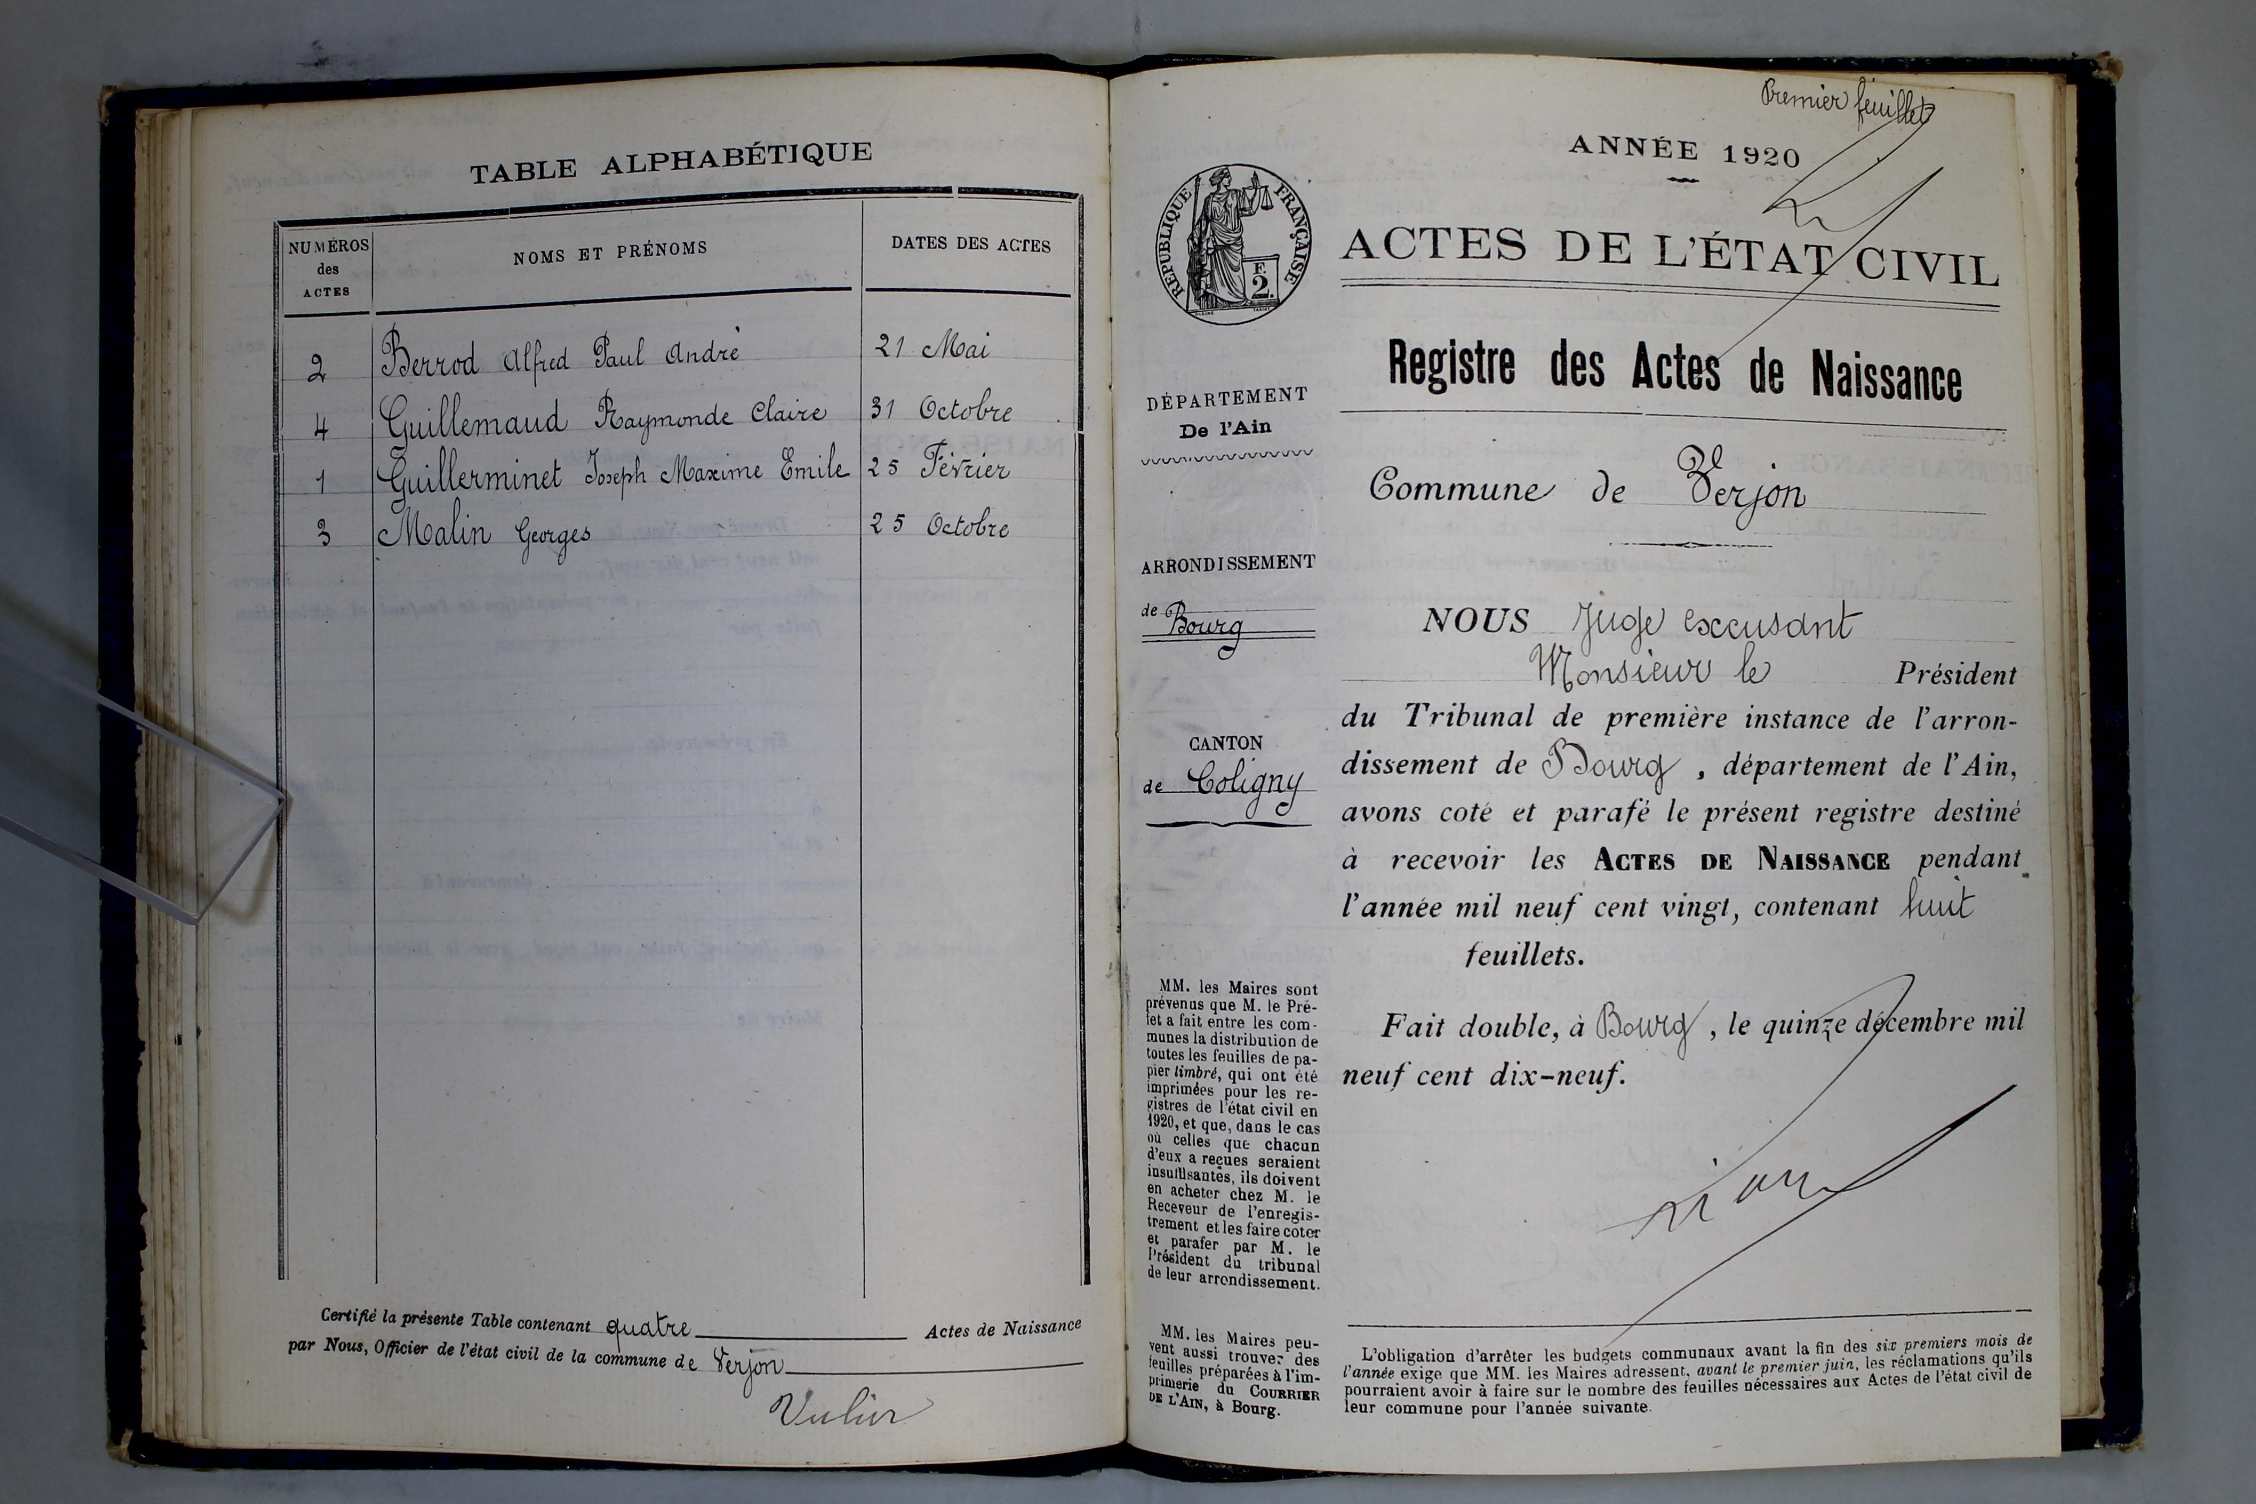 TABLE ALPHABÉTIQUE
NUMÉROS
des
ACTES
NOMS ET PRÉNOMS
DATES DES ACTES
2 Berrod Alfred Paul André 21 Mai
4 Guillemaud Raymonde Claire 31 Octobre
1 Guillerminet Joseph Maxime Emile 25 Février
3 Malin Georges 25 Octobre
Certifié la présente Table contenant quatre Actes de Naissance
par Nous, Officier de l'état civil de la commune de Verjon
Premier feuillet
ANNÉE 1920
RÉPUBLIQUE FRANÇAISE
F.
2.
ACTES DE L'ÉTAT CIVIL
Registre des Actes de Naissance
DÉPARTEMENT
De l'Ain
Commune de Verjon
ARRONDISSEMENT
de Bourg
CANTON
de Coligny
MM. les Maires sont
prévenus que M. le Pré-
fet a fait entre les com-
munes la distribution de
toutes les feuilles de pa-
pier timbré, qui ont été
imprimées pour les re-
gistres de l'état civil en
1920, et que, dans le cas
où celles que chacun
d'eux a reçues seraient
insuffisantes, ils doivent
en acheter chez M. le
Receveur de l'enregis-
trement et les faire coter
et parafer par M. le
Président du tribunal
de leur arrondissement.
MM. les Maires peu-
vent aussi trouver des
feuilles préparées à l'im-
primerie du COURRIER
DE L'AIN, à Bourg.
NOUS Juge excusant
Monsieur le Président
du Tribunal de première instance de l'arron-
dissement de Bourg, département de l'Ain,
avons coté et parafé le présent registre destiné
à recevoir les ACTES DE NAISSANCE pendant
l'année mil neuf cent vingt, contenant huit
feuillets.
Fait double, à Bourg, le quinze décembre mil
neuf cent dix-neuf.
L'obligation d'arrêter les budgets communaux avant la fin des six premiers mois de
l'année exige que MM. les Maires adressent, avant le premier juin, les réclamations qu'ils
pourraient avoir à faire sur le nombre des feuilles nécessaires aux Actes de l'état civil de
leur commune pour l'année suivante.